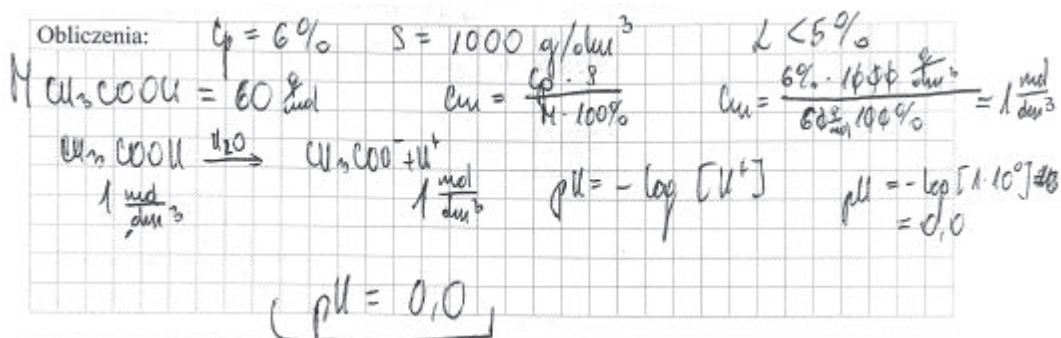 Obliczenia: Cp = 6% S = 1000 g/dm³ α < 5%
M CH₃COOH = 60 g/mol Cm = Cp · S / M · 100% Cm = 6% · 1000 g/dm³ / 60 g/mol 100% = 1 mol/dm³
CH₃COOH H₂O → CH₃COO⁻ + H⁺ pH = - log [H⁺] pH = - log [1·10⁰]
1 mol/dm³ 1 mol/dm³ = 0,0
pH = 0,0